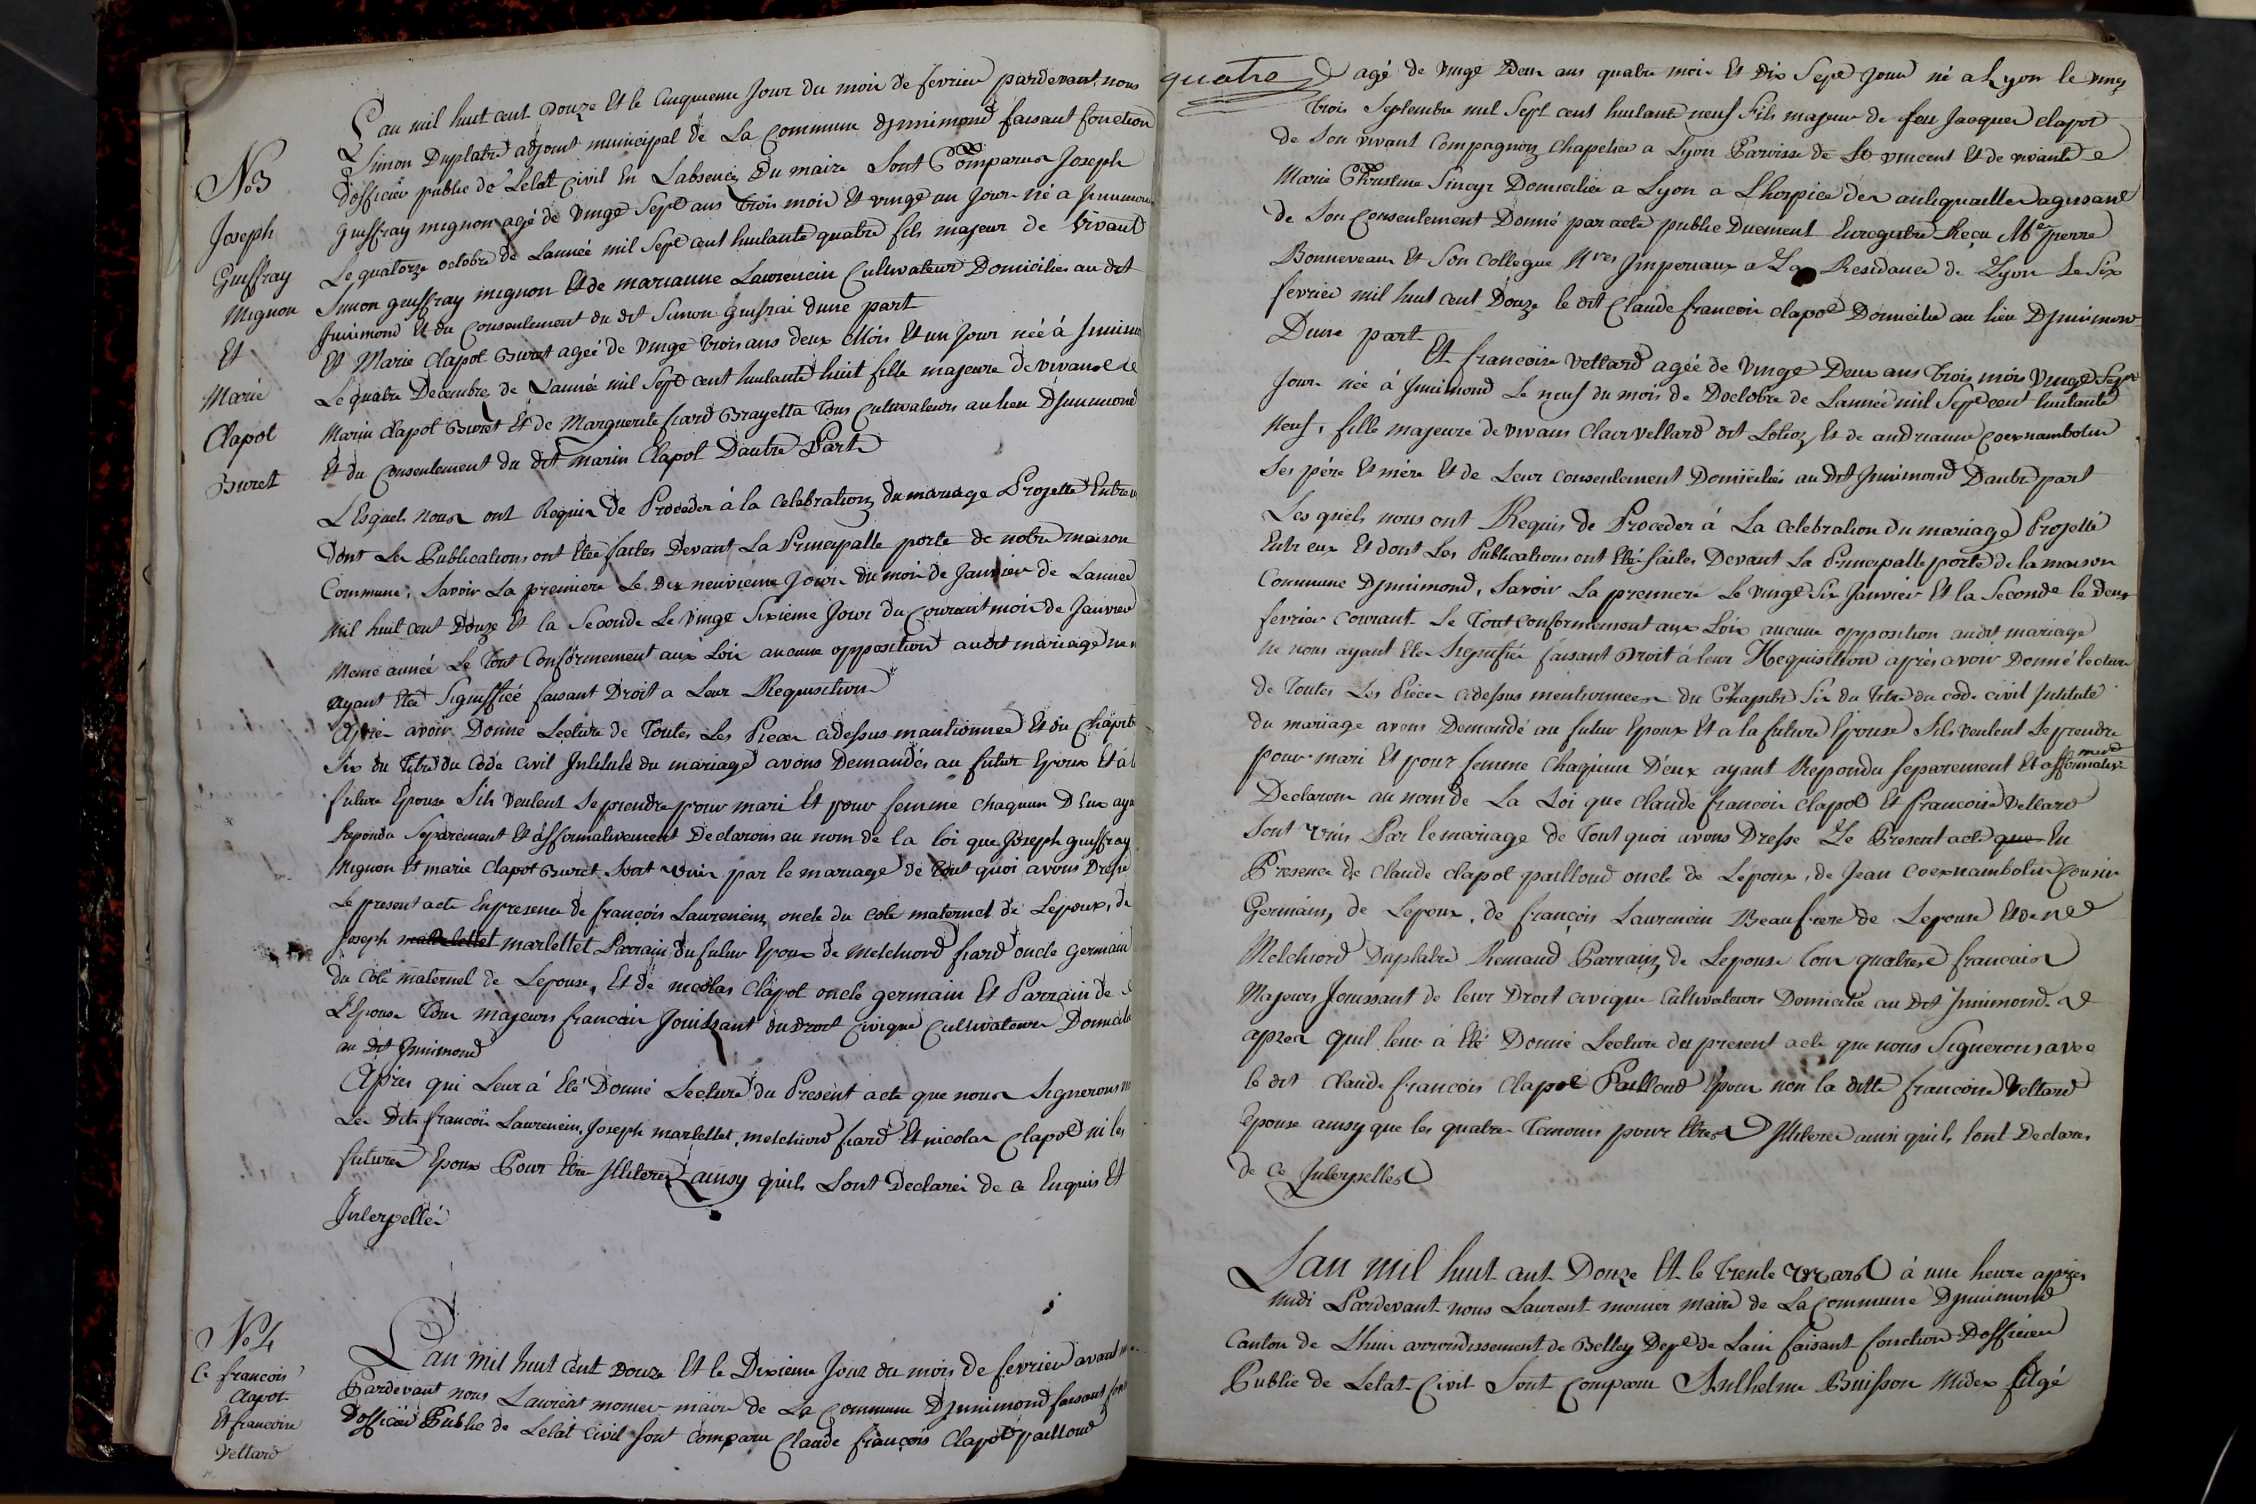 No 3
Joseph
Guiffray
Mignon
Et
Marie
Clapot
Buret
L'an mil huit cent Douze Et le Cinquieme Jour du mois de fevrier pardevant nous
Simon Duplatre adjoint municipal de La Commune Djnnimond faisant fonction
Dofficier public de Letat Civil En Labsence Du maire Sont Comparus Joseph
Guiffray mignon agé de vingt Sept ans Trois mois Et vingt un Jour né a Jnnimond
Le quatorze octobre de Lannée mil Sept cent huitante quatre fils majeur de vivant
Simon guiffray mignon Et de marianne Laurencin Cultivateurs Domicilies au dit
Jnnimond Et du Consentement du dit Simon Guiffrai dune part
Et Marie Clapot Buret agée de vingt Trois ans deux Mois Et un Jour née à Jnnimond
Le quatre Decembre de Lannée mil Sept cent huitante huit fille majeure de vivant
Marin Clapot Buret Et de Marguerite fiard Brayetta Tous Cultivateurs au lieu Djnnimond
Et du Consentement du dit marin Clapot Dautre Part
LEsquels nous ont Requis de Proceder à la Celebration du mariage Projetté Entre
Dont Les Publications ont Etée faites Devant La Principalle porte de notre maison
Commune, Savoir La premiere Le Dix neuvieme Jour du mois de Janvier de Lannée
mil huit cent Douze Et la Seconde Le vingt Sixieme Jour du Courant mois de Janvier
meme année Le Tout Conformement aux Loix aucune opposition audit mariage ne
ayant Etée Signiffiée faisant Droit a Leur Requisition
Apres avoir Donné Lecture de Toutes Les Pieces cidessus mantionnée Et du Chapitre
Six du Titre du Code Civil Jntitulé du mariage avons Demandés au futur Epoux Et à l
future Epouse Sils veulent Se prendre pour mari Et pour femme chaqun D Eux aya
Repondu Separément Et affirmativement Declarons au nom de la loi que Joseph guiffray
Mignon Et marie Clapot Buret Sont unis par le mariage de tout quoi avons Dressé
Le present acte En presence de françois Laurencin oncle du coté maternel de Lepoux, de
Joseph marlettet Parrain du futur Epoux de Melchiord fiard oncle Germain
du Coté maternel de Lepouse, Et de nicolas Clapot oncle germain Et Parrain de
LEpouse Tous majeurs francois Jouissant du droit Civique Cultivateurs Domicilié
au dit Jnnimond
Après qui Leur à Eté Donné Lecture du Présent acte que nous Signerons
Les Dits françois Laurencin, Joseph marlettet, melchiord fiard Et nicolas Clapot ni les
futures Epoux Pour Etre Jlliterés ainsy quils Sont Declarés de ce Enquis Et
Jnterpellés
No 4
Ce francois
Clapot
Et francoise
Vettard
L'an mil huit cent Douze Et le Dixieme Jour du mois de fevrier avant
Pardevant nous Laurent monier maire de La Commune Djnnimond faisant fon
Dofficier Public de Letat Civil Sont Comparu Claude françois Clapot pailloud
quatre
agé de vingt Deux ans quatre mois Et Dix Sept Jour né a Lyon le vingt
Trois Septembre mil Sept cent huitante neuf fils majeur de feu Jacques clapot
de Son vivant Compagnon Chapelier a Lyon Paroisse de St vincent Et de vivante
Marie Christine Sincyr Domiciliée a Lyon a Lhospice des antiquailles agissant
de Son Consentement Donné par acte public Duement Enregistré Reçu Me pierre
Bonneveaux Et Son Collegue Nres Jmperiaux a La Residance de Lyon Le Six
fevrier mil huit cent Douze le dit Claude francois clapot Domicilié au lieu Djnnimond
Dune part
Et francoise Vettard agée de vingt Deux ans Trois mois vingt Sept
Jour née à Jnnimond Le neuf du mois de Doctobre de Lannée mil Sept cent huitante
neuf, fille majeure de vivans Clair Vettard dit Lotioz Et de andreanne Coexnambotin
Ses pére Et mére Et de Leur consentement Domiciliés au dit Jnnimond Dautre part
Les quels nous ont Requis de Proceder á La Celebration du mariage Projetté
Entre eux Et dont Les Publications ont Eté faites Devant La Principalle porte de la maison
Commune Djnnimond, Savoir La premiere Le vingt Six Janvier Et la Seconde le deux
fevrier Courant Le Tout conformement aux Loix aucune opposition audit mariage
ne nous ayant Etée Signifiée faisant Droit á leur Requisition après avoir Donné lecture
de Toutes Les Pieces cidessus mentionnees du Chapitre Six du Titre du code civil Jntitulé
du mariage avons Demandé au futur Epoux Et a la future Epouse Sils veulent Se prendre
pour mari Et pour femme Chaquun D'eux ayant Repondu Separement Et affirmativement
Declarons au nom de La Loi que Claude francois Clapot Et francoise Vettard
Sont unis Par le mariage de Tout quoi avons Dressé Le Present acte que En
Presence de Claude Clapot pailloud oncle de Lepoux, de Jean Coexnambotin Cousin
Germain, de Lepoux, de françois Laurencin Beaufrere de Lepouse Et de
Melchiord Duplatre Remand Parrain de Lepouse Tous quatres francais
Majeurs Jouissant de leur Droit civique Cultivateurs Domicilié au dit Jnnimond
apres quil leur á Eté Donné Lecture du present acte que nous Signerons avec
le dit Claude francois Clapot Paillond Epoux non la ditte francoise Vettard
Epouse ainsy que les quatre Temoins pour Etres Jlliterée ainsi quils Sont Declares
de ce Jnterpelles
L'an mil huit cent Douze Et le Trente Mars à une heure après
midi Pardevant nous Laurent monier maire de La Commune Djnnimond
Canton de Lhuis arrondissement de Belley Dept de Lain faisant fonction Dofficier
Public de Letat Civil Sont Comparu Anthelme Buisson Midex agé